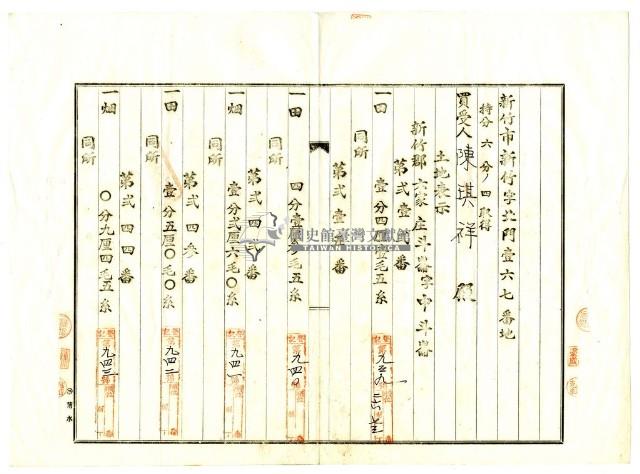 新竹市新竹字北門壹六七番地
持分六分ノ四取得
買受人 陳琪祥 殿
土地表示
新竹郡六家庄斗崙字中斗崙
第弍壹番
一田 壹分四厘壹毛五糸
九五九
同所
第弍 番
一田 四分壹 毛五糸
九四〇
同所
第弍四弍番
一畑 壹分弍厘六毛〇糸
九四一
同所
第弍四参番
一田 壹分五厘〇毛〇糸
九四二
同所
第弍四四番
一畑 〇分九厘四毛五糸
九四三
國史館臺灣文獻館
TAIWAN HISTORICA
清水